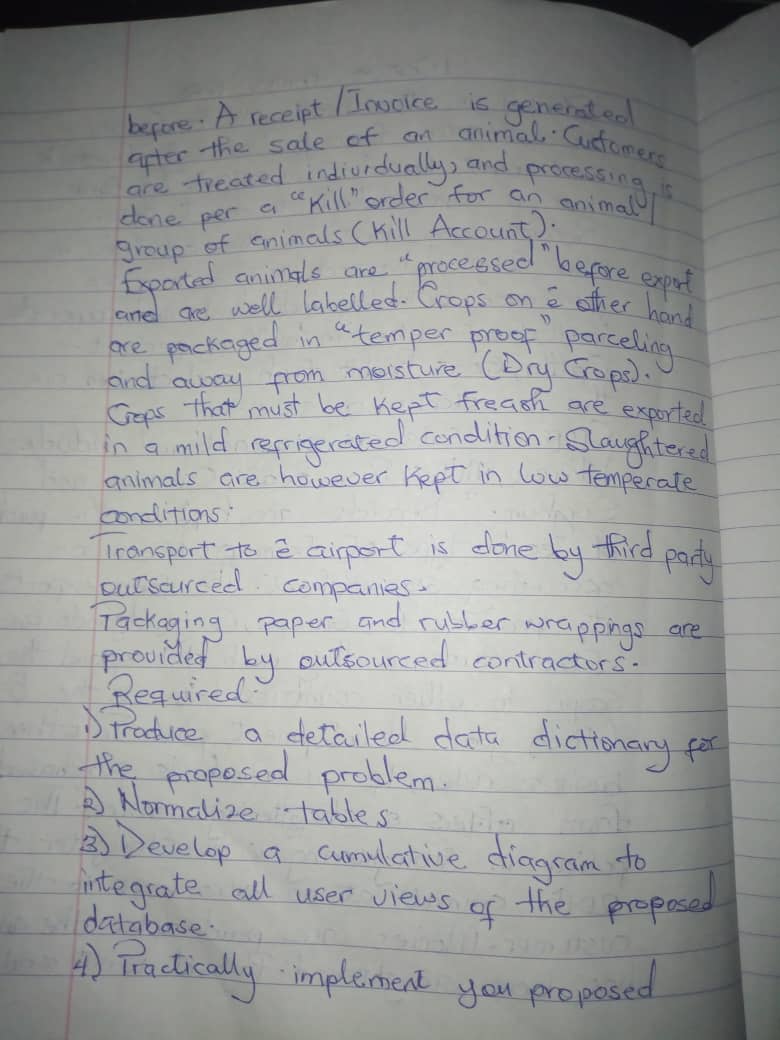 before. A receipt / Invoice is generated
after the sale of an animal. Customers
are treated individually, and processing is
done per a "Kill" order for an animal /
group of animals (Kill Account).
Exported animals are "processed" before export
and are well labelled. Crops on ē other hand
are packaged in "temper proof" parceling
and away from moisture (Dry Crops).
Crops that must be kept freash are exported
in a mild refrigerated condition. Slaughtered
animals are however kept in low temperate
conditions.
Transport to ē airport is done by third party
outsourced companies.
Packaging paper and rubber wrappings are
provided by outsourced contractors.
Required:
1) Produce a detailed data dictionary for
the proposed problem.
2) Normalize tables
3) Develop a cumulative diagram to
integrate all user views of the proposed
database.
4) Practically implement you proposed